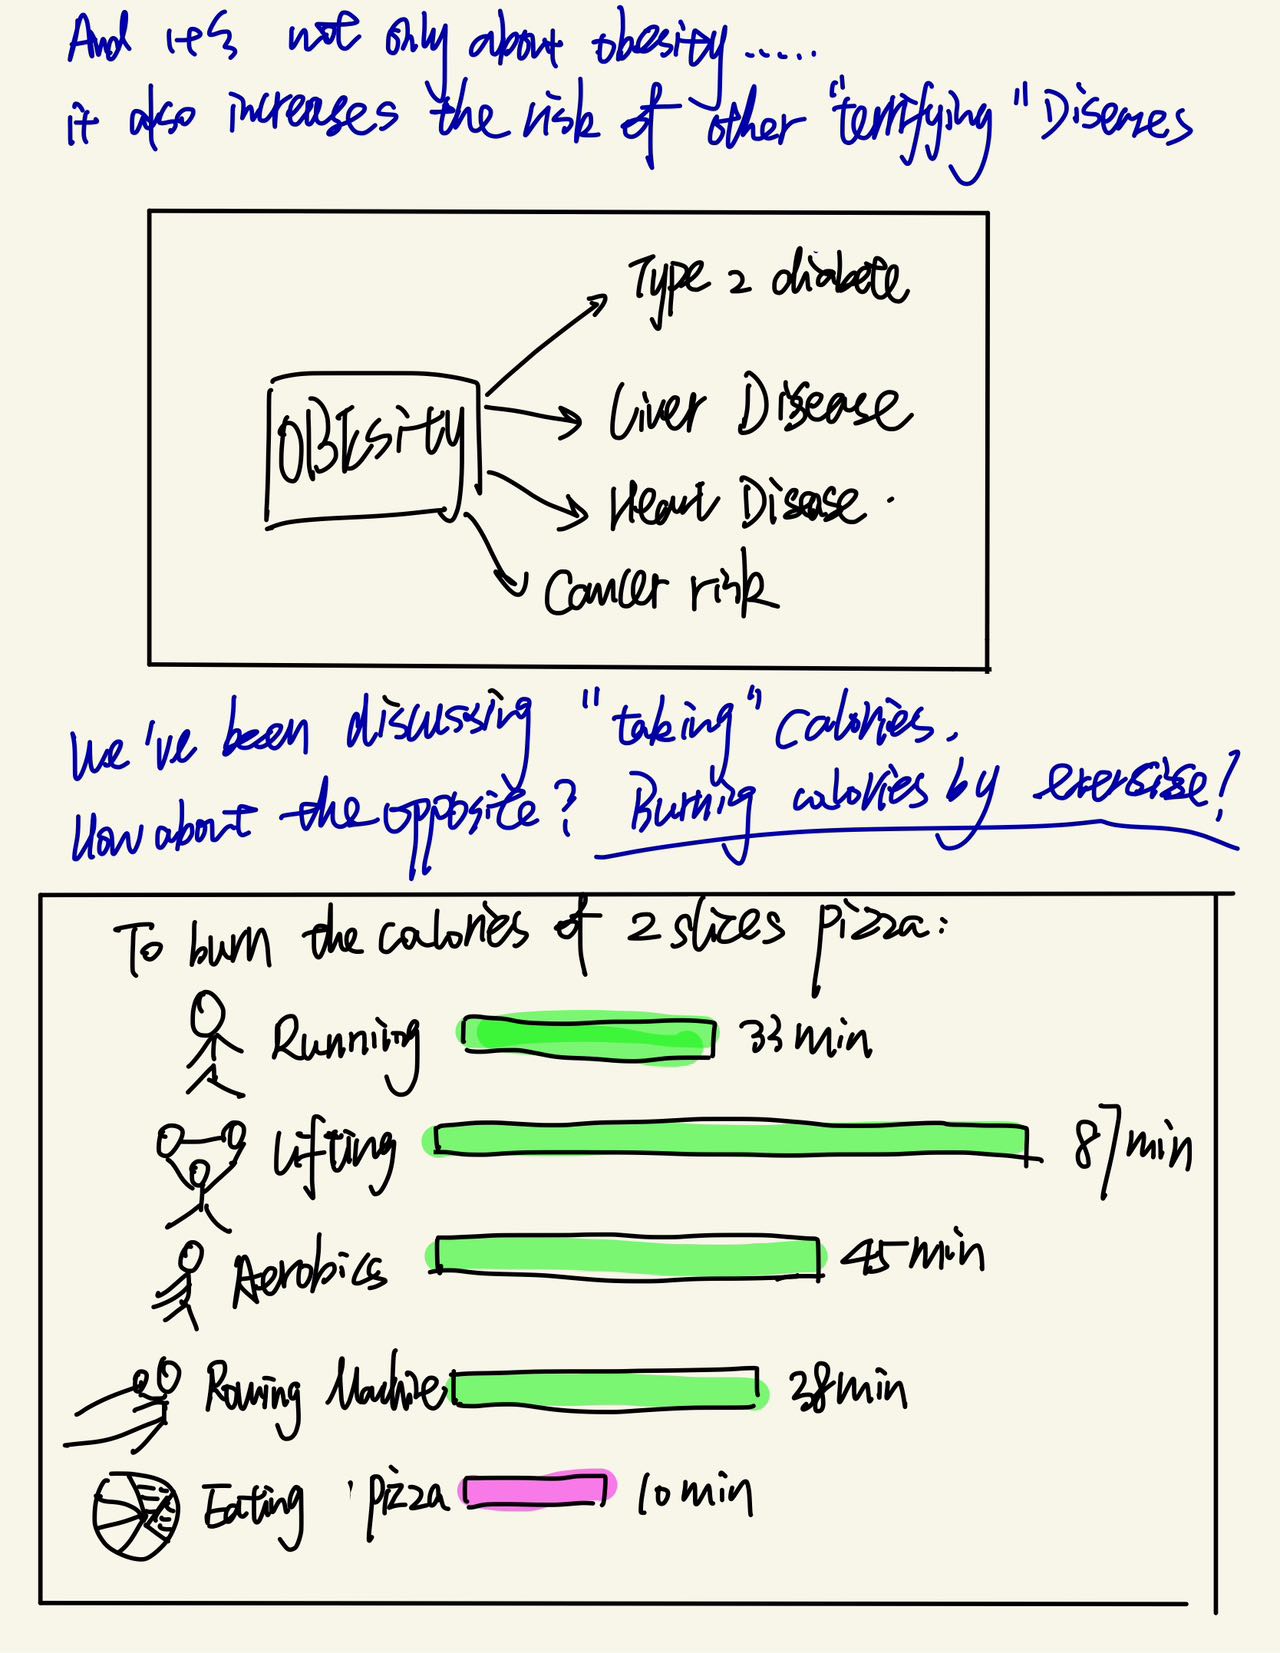 And it's not only about obesity.....
it also increases the risk of other "terrifying" Diseases
Type 2 diabete
OBEsity
Liver Disease
Heart Disease.
Cancer risk
We've been discussing "taking" calories.
How about the opposite? Burning calories by exersize!
To burn the calories of 2 slices pizza:
Running 33 min
Lifting 87 min
Aerobics 45 min
Rowing Machine 38 min
Eating pizza 10 min